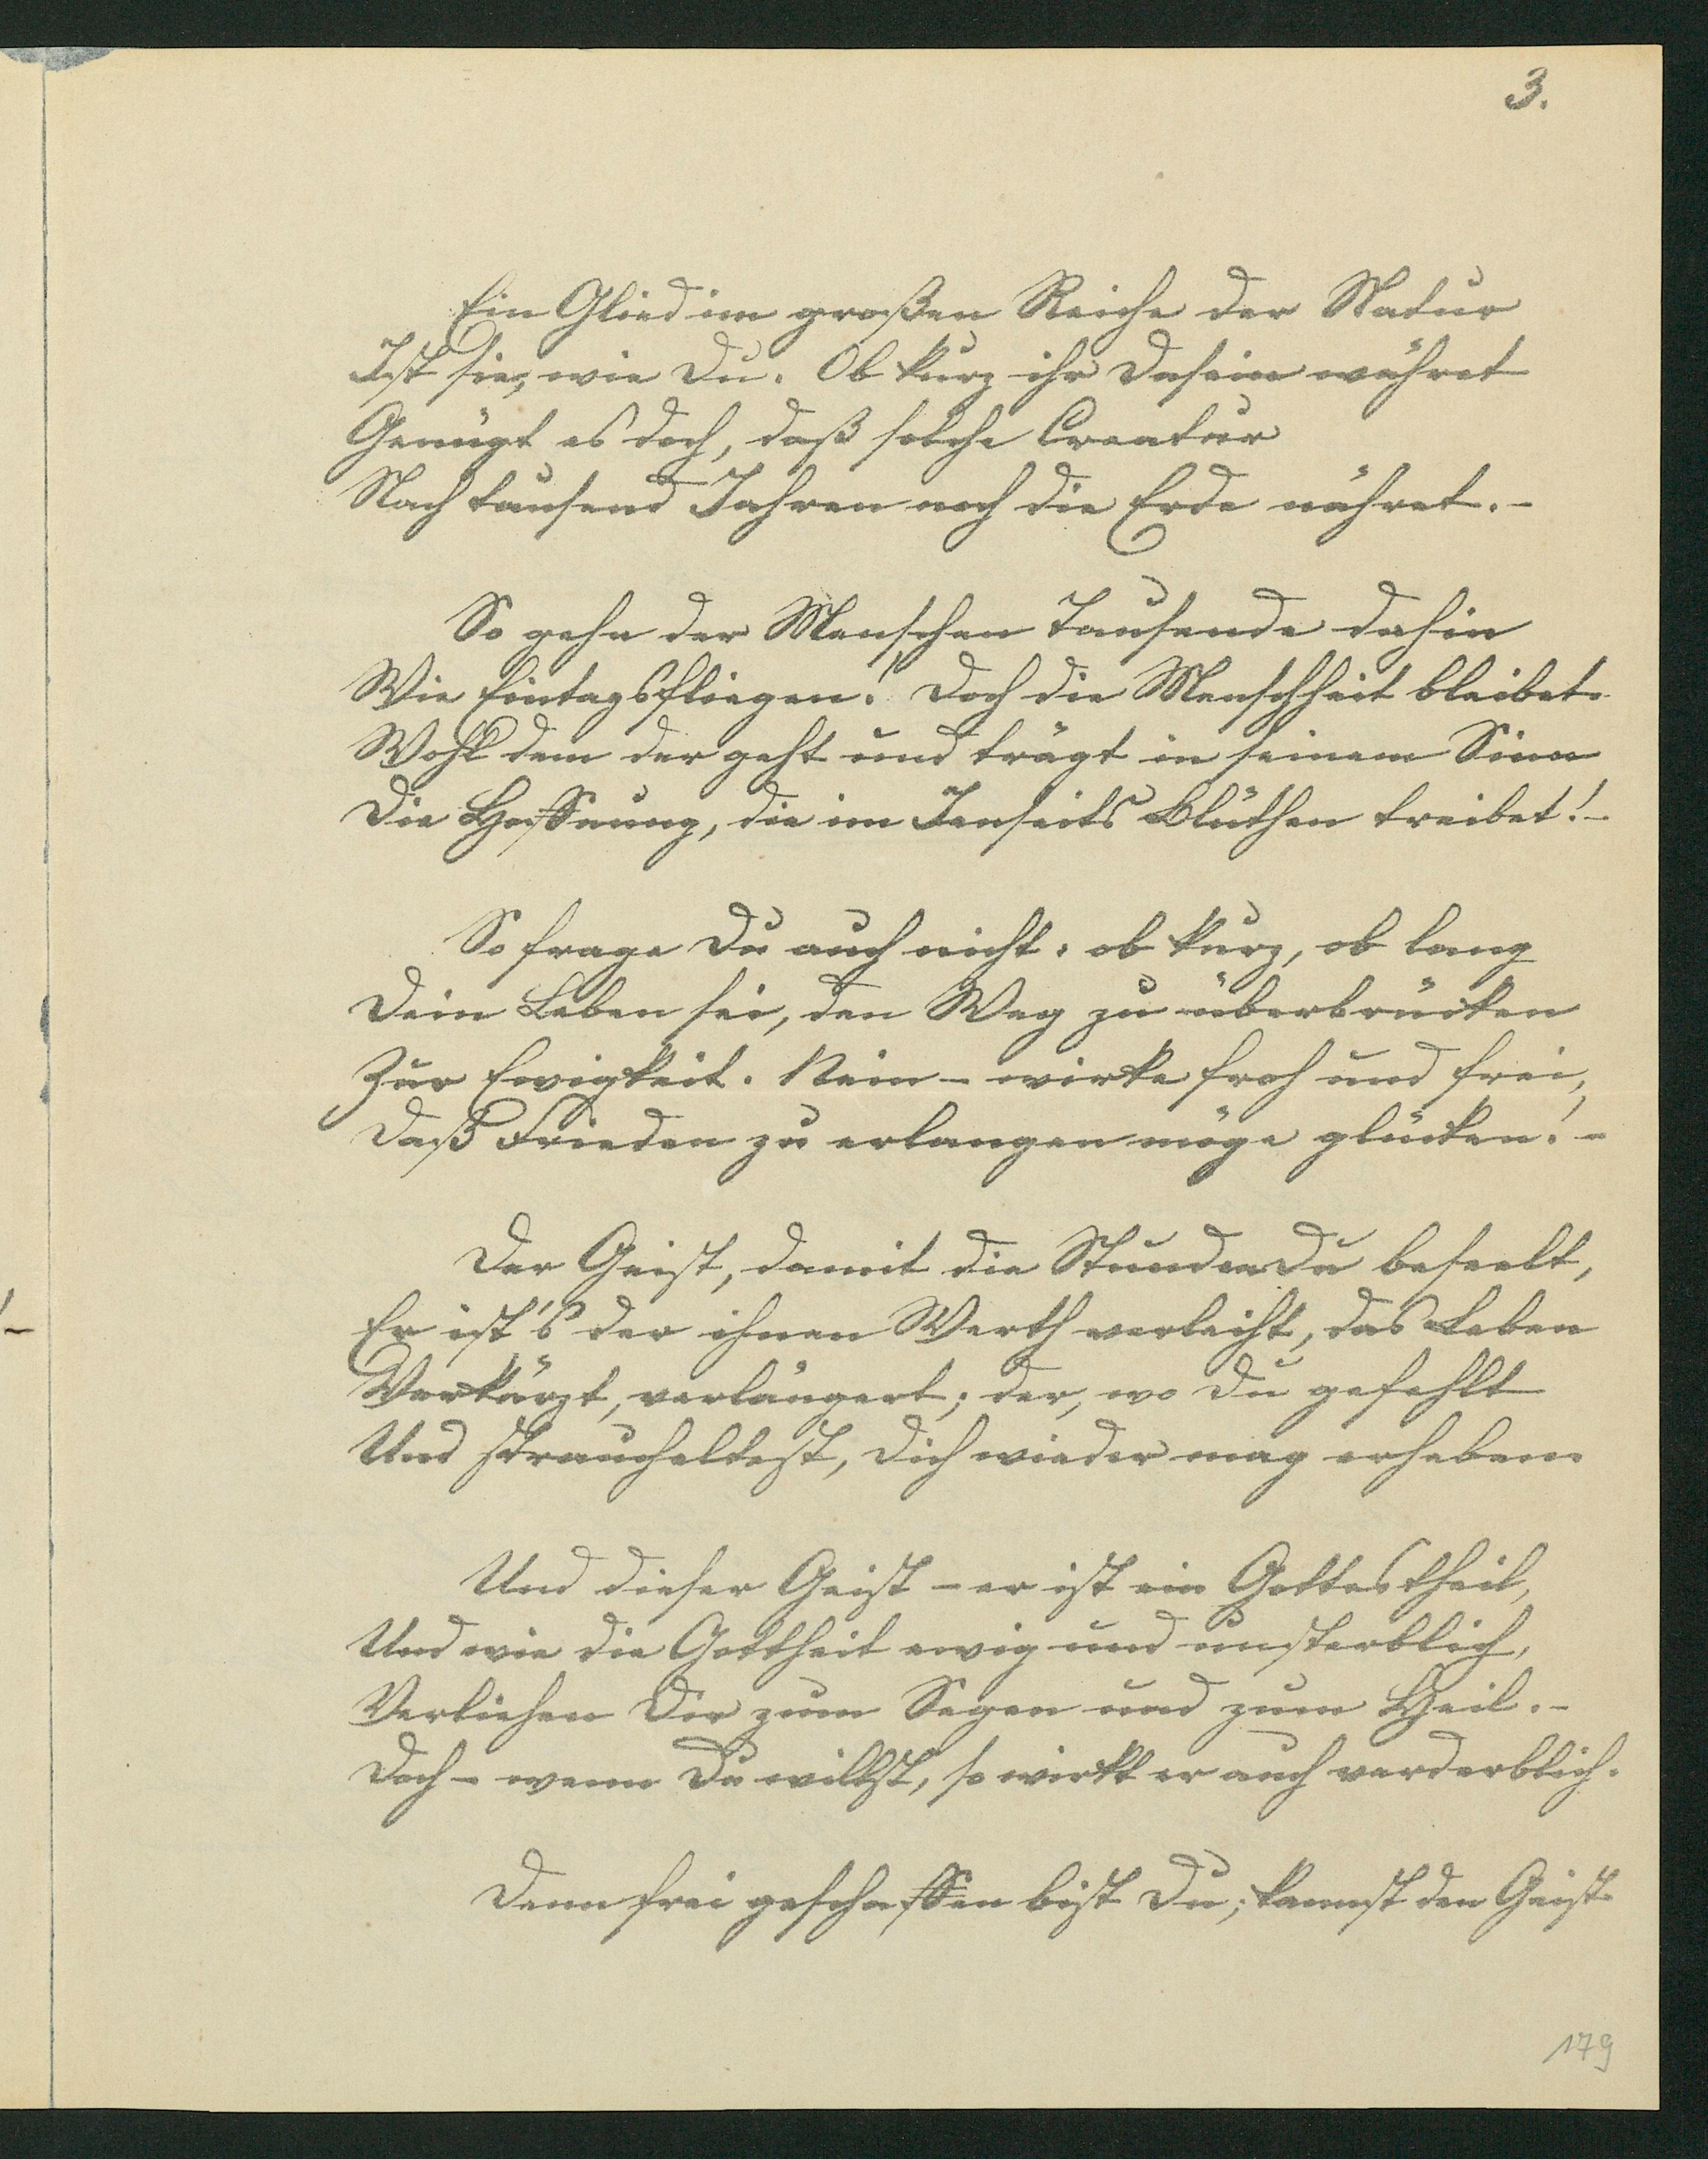 3.
Ein Glied im großen Reiche der Natur
Ist sie, wie Du. Ob kurz ihr Dasein währet
Genügt es doch, daß solche Creatur
Nach tausend Jahren noch die Erde nähret. -
So gehn der Menschen Tausende dahin
Wie Eintagsfliegen! Doch die Menschheit bleibet.
Wohl dem der geht und trägt in seinem Sinn
Die Hoffnung, die im Jenseits Blüthen treibet! -
So frage Du auch nicht: ob kurz, ob lang
Dein Leben sei, den Weg zu überbrücken
Zur Ewigkeit. Nein - wirke froh und frei,
Daß Frieden zu erlangen möge glücken! -
Der Geist, damit die Stunden Du beseelt,
Er ist's der ihnen Werth verleiht, das Leben
Verkürzt, verlängert; der, wo Du gefehlt
Und straucheltest, Dich wieder mag erheben.
Und dieser Geist - er ist ein Gottestheil,
Und wie die Gottheit ewig und unsterblich,
Verliehen Dir zum Segen und zum Heil. -
Doch - wenn Du willst, so wirkt er auch verderblich.
Denn frei geschaffen bist Du; kannst den Geist
179